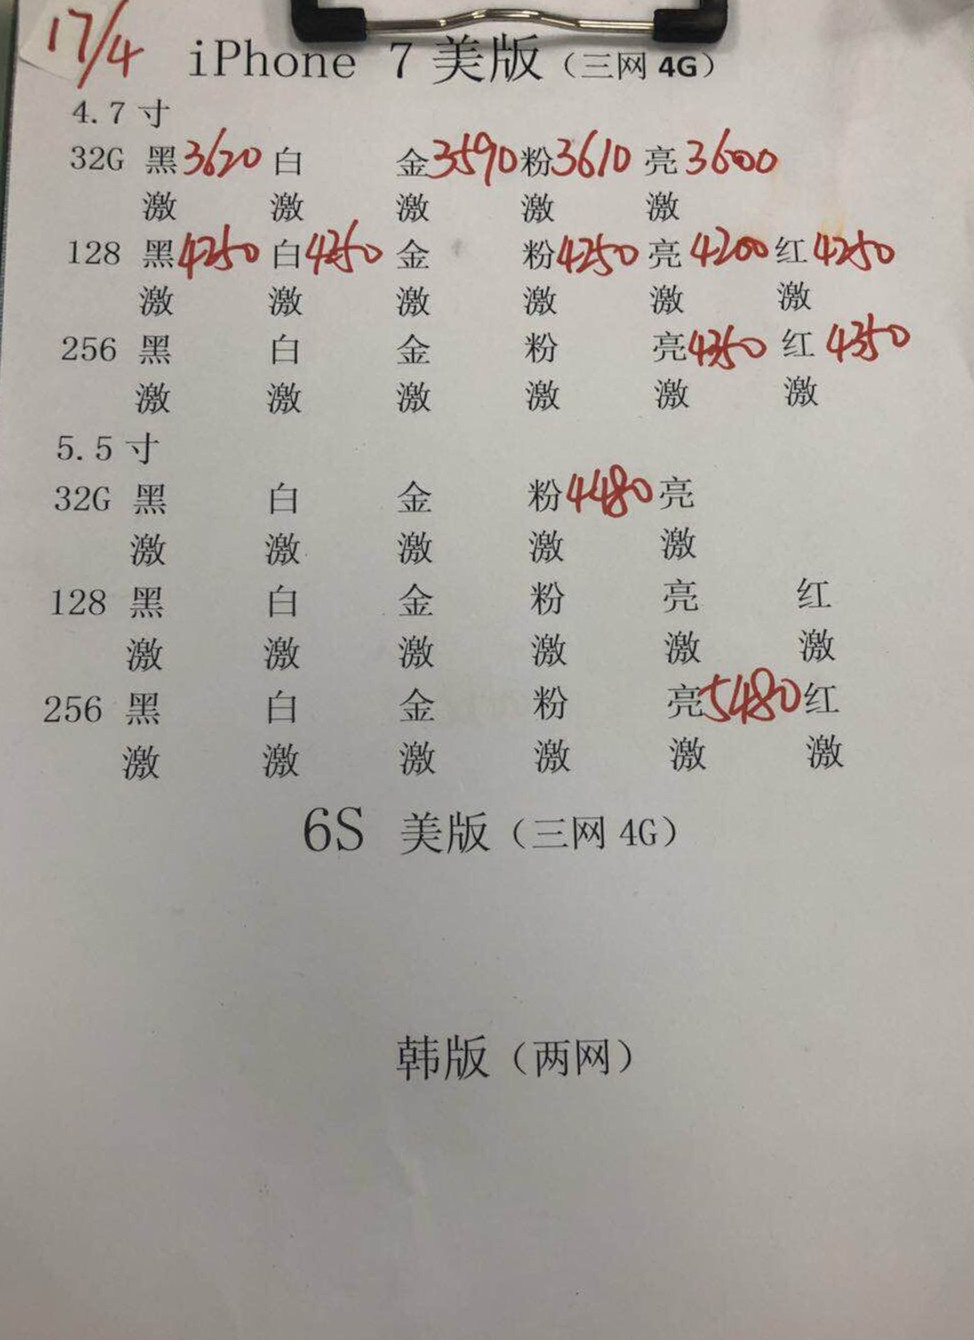 17/4
iPhone 7 美版（三网 4G）
4.7 寸
32G 黑 3620 白 金 3590 粉 3610 亮 3600
激 激 激 激 激
128 黑 4250 白 4250 金 粉 4250 亮 4200 红 4250
激 激 激 激 激 激
256 黑 白 金 粉 亮 4350 红 4350
激 激 激 激 激 激
5.5 寸
32G 黑 白 金 粉 4480 亮
激 激 激 激 激
128 黑 白 金 粉 亮 红
激 激 激 激 激 激
256 黑 白 金 粉 亮 5480 红
激 激 激 激 激 激
6S 美版（三网 4G）
韩版（两网）